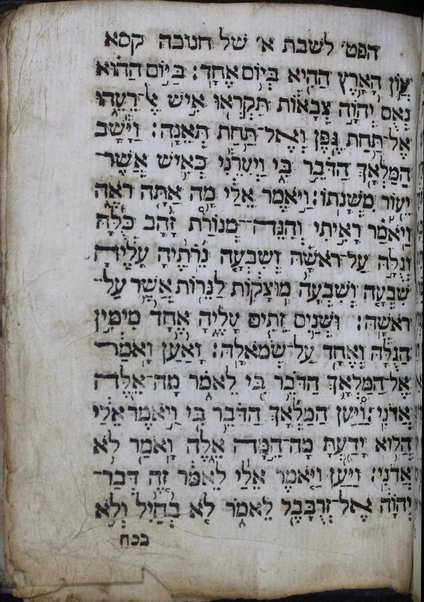 הפט׳ לשבת א׳ של חנוכה קסא
עֲוֹן הָאָרֶץ הַהִיא בְּיוֹם אֶחָד׃ בַּיּוֹם הַהוּא
נְאֻם יְהוָה צְבָאוֹת תִּקְרְאוּ אִישׁ לְרֵעֵהוּ
אֶל־תַּחַת גֶּפֶן וְאֶל־תַּחַת תְּאֵנָה׃ וַיָּשָׁב
הַמַּלְאָךְ הַדֹּבֵר בִּי וַיְעִירֵנִי כְּאִישׁ אֲשֶׁר־
יֵעוֹר מִשְּׁנָתוֹ׃ וַיֹּאמֶר אֵלַי מָה אַתָּה רֹאֶה
וַיֹּאמַר רָאִיתִי וְהִנֵּה־מְנוֹרַת זָהָב כֻּלָּהּ
וְגֻלָּהּ עַל־רֹאשָׁהּ וְשִׁבְעָה נֵרֹתֶיהָ עָלֶיהָ
שִׁבְעָה וְשִׁבְעָה מוּצָקוֹת לַנֵּרוֹת אֲשֶׁר עַל־
רֹאשָׁהּ׃ וּשְׁנַיִם זֵתִים עָלֶיהָ אֶחָד מִימִין
הַגֻּלָּה וְאֶחָד עַל־שְׂמֹאלָהּ׃ וָאַעַן וָאֹמַר
אֶל־הַמַּלְאָךְ הַדֹּבֵר בִּי לֵאמֹר מָה־אֵלֶּה
אֲדֹנִי׃ וַיַּעַן הַמַּלְאָךְ הַדֹּבֵר בִּי וַיֹּאמֶר אֵלַי
הֲלוֹא יָדַעְתָּ מָה־הֵמָּה אֵלֶּה וָאֹמַר לֹא
אֲדֹנִי׃ וַיַּעַן וַיֹּאמֶר אֵלַי לֵאמֹר זֶה דְּבַר־
יְהוָה אֶל־זְרֻבָּבֶל לֵאמֹר לֹא בְחַיִל וְלֹא
בכח